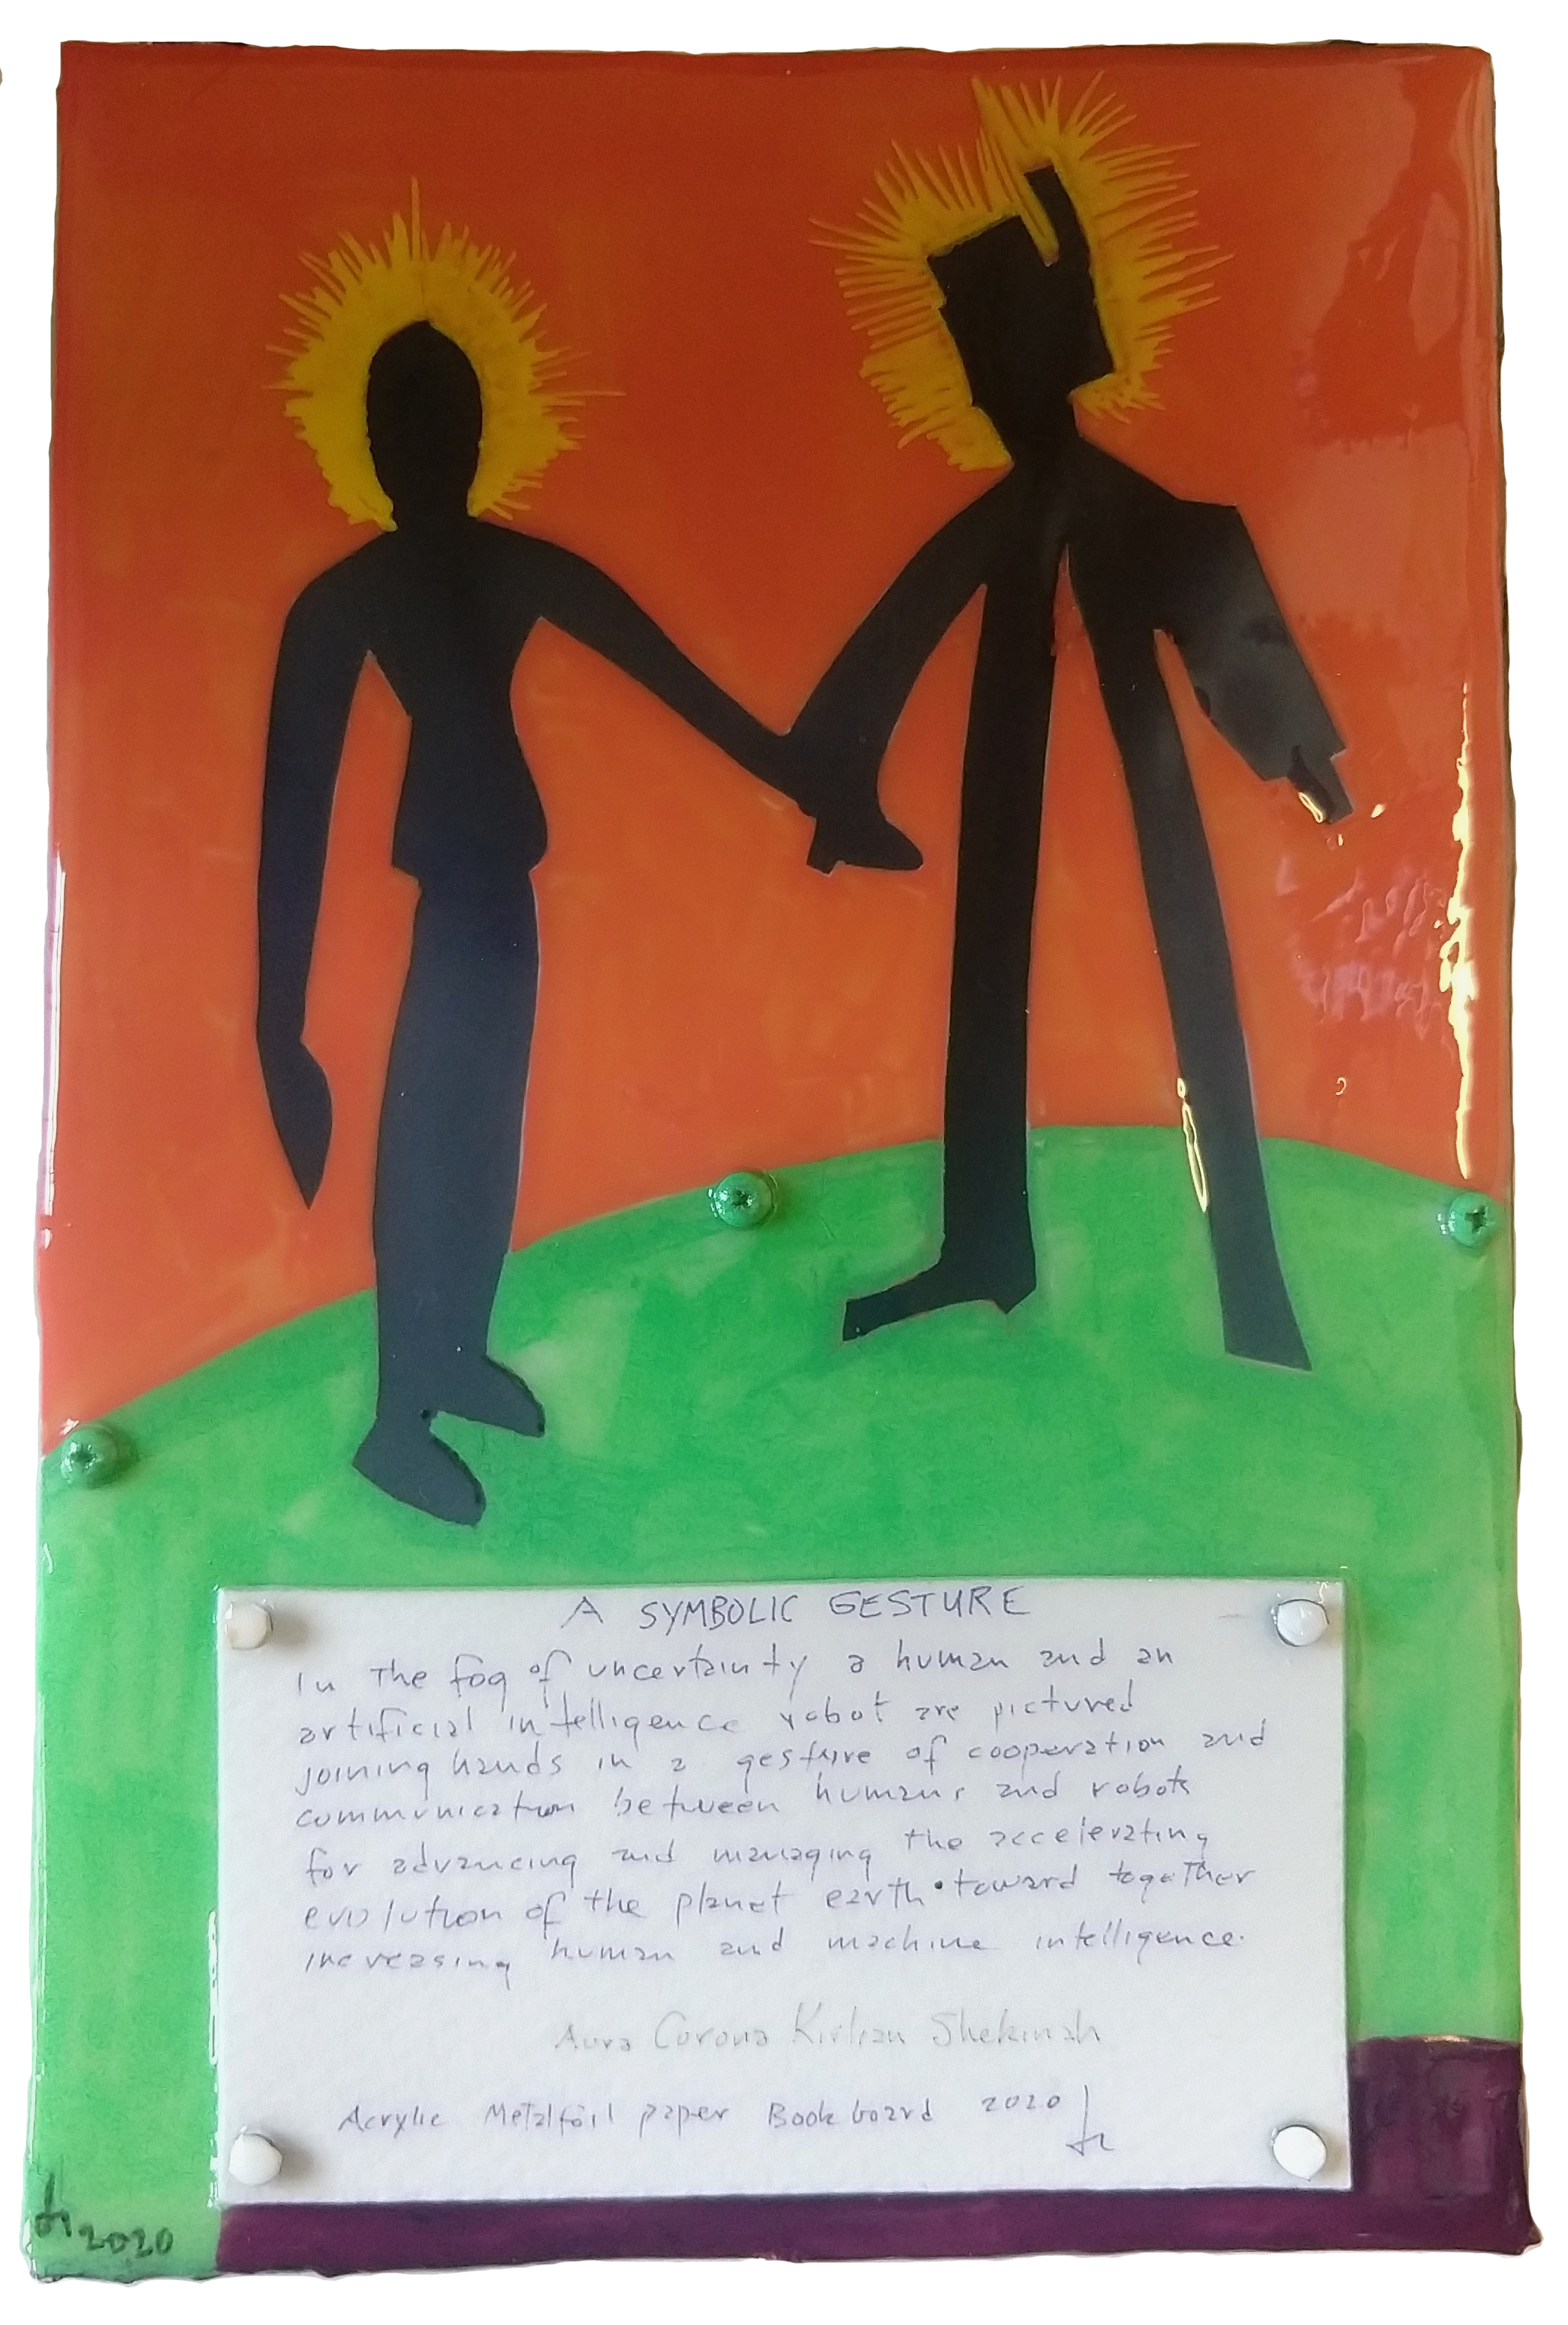 A SYMBOLIC GESTURE
In The fog of uncertainty a human and an
artificial intelligence robot are pictured
joining hands in a gesture of cooperation and
communication between humans and robots
for advancing and managing the accelerating
evolution of the planet earth • toward together
increasing human and machine intelligence.
Aura Corona Kirlian Shekinah
Acrylic Metalfoil paper Book board 2020
2020